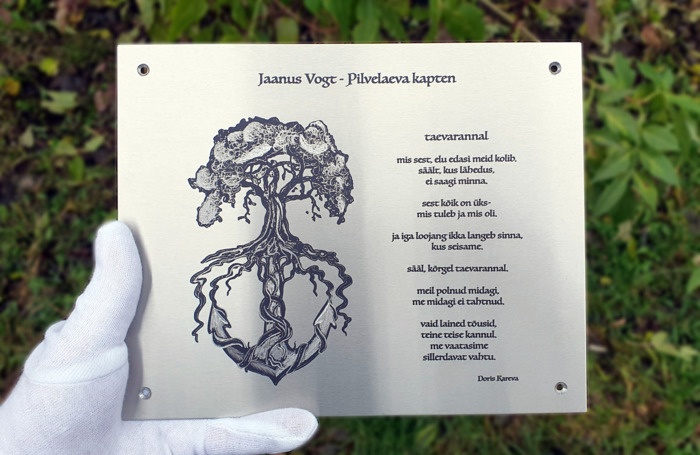 Jaanus Vogt - Pilvelaeva kapten
taevarannal
mis sest, elu edasi meid kolib.
säält, kus lähedus,
ei saagi minna.
sest kõik on üks-
mis tuleb ja mis oli.
ja iga loojang ikka langeb sinna,
kus seisame.
sääl, kõrgel taevarannal.
meil polnud midagi,
me midagi ei tahtnud.
vaid lained tõusid,
teine teise kannul.
me vaatasime
sillerdavat vahtu.
Doris Kareva